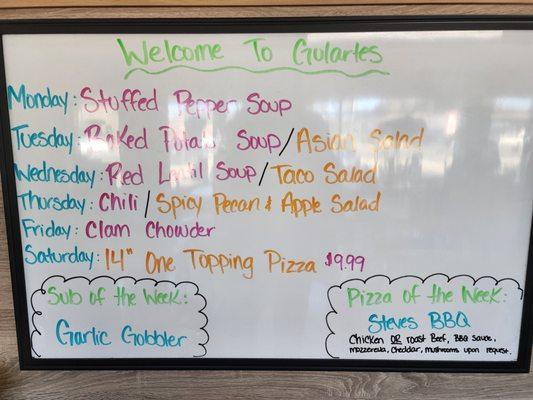 Welcome To Gulartes
Monday: Stuffed Pepper Soup
Tuesday: Baked Potato Soup/Asian Salad
Wednesday: Red Lentil Soup/Taco Salad
Thursday: Chili/Spicy Pecan & Apple Salad
Friday: Clam Chowder
Saturday: 14" One Topping Pizza $9.99
Sub of the Week:
Garlic Gobbler
Pizza of the Week:
Steves BBQ
Chicken OR roast Beef, BBQ sauce,
mozzerella, cheddar, mushrooms upon request.